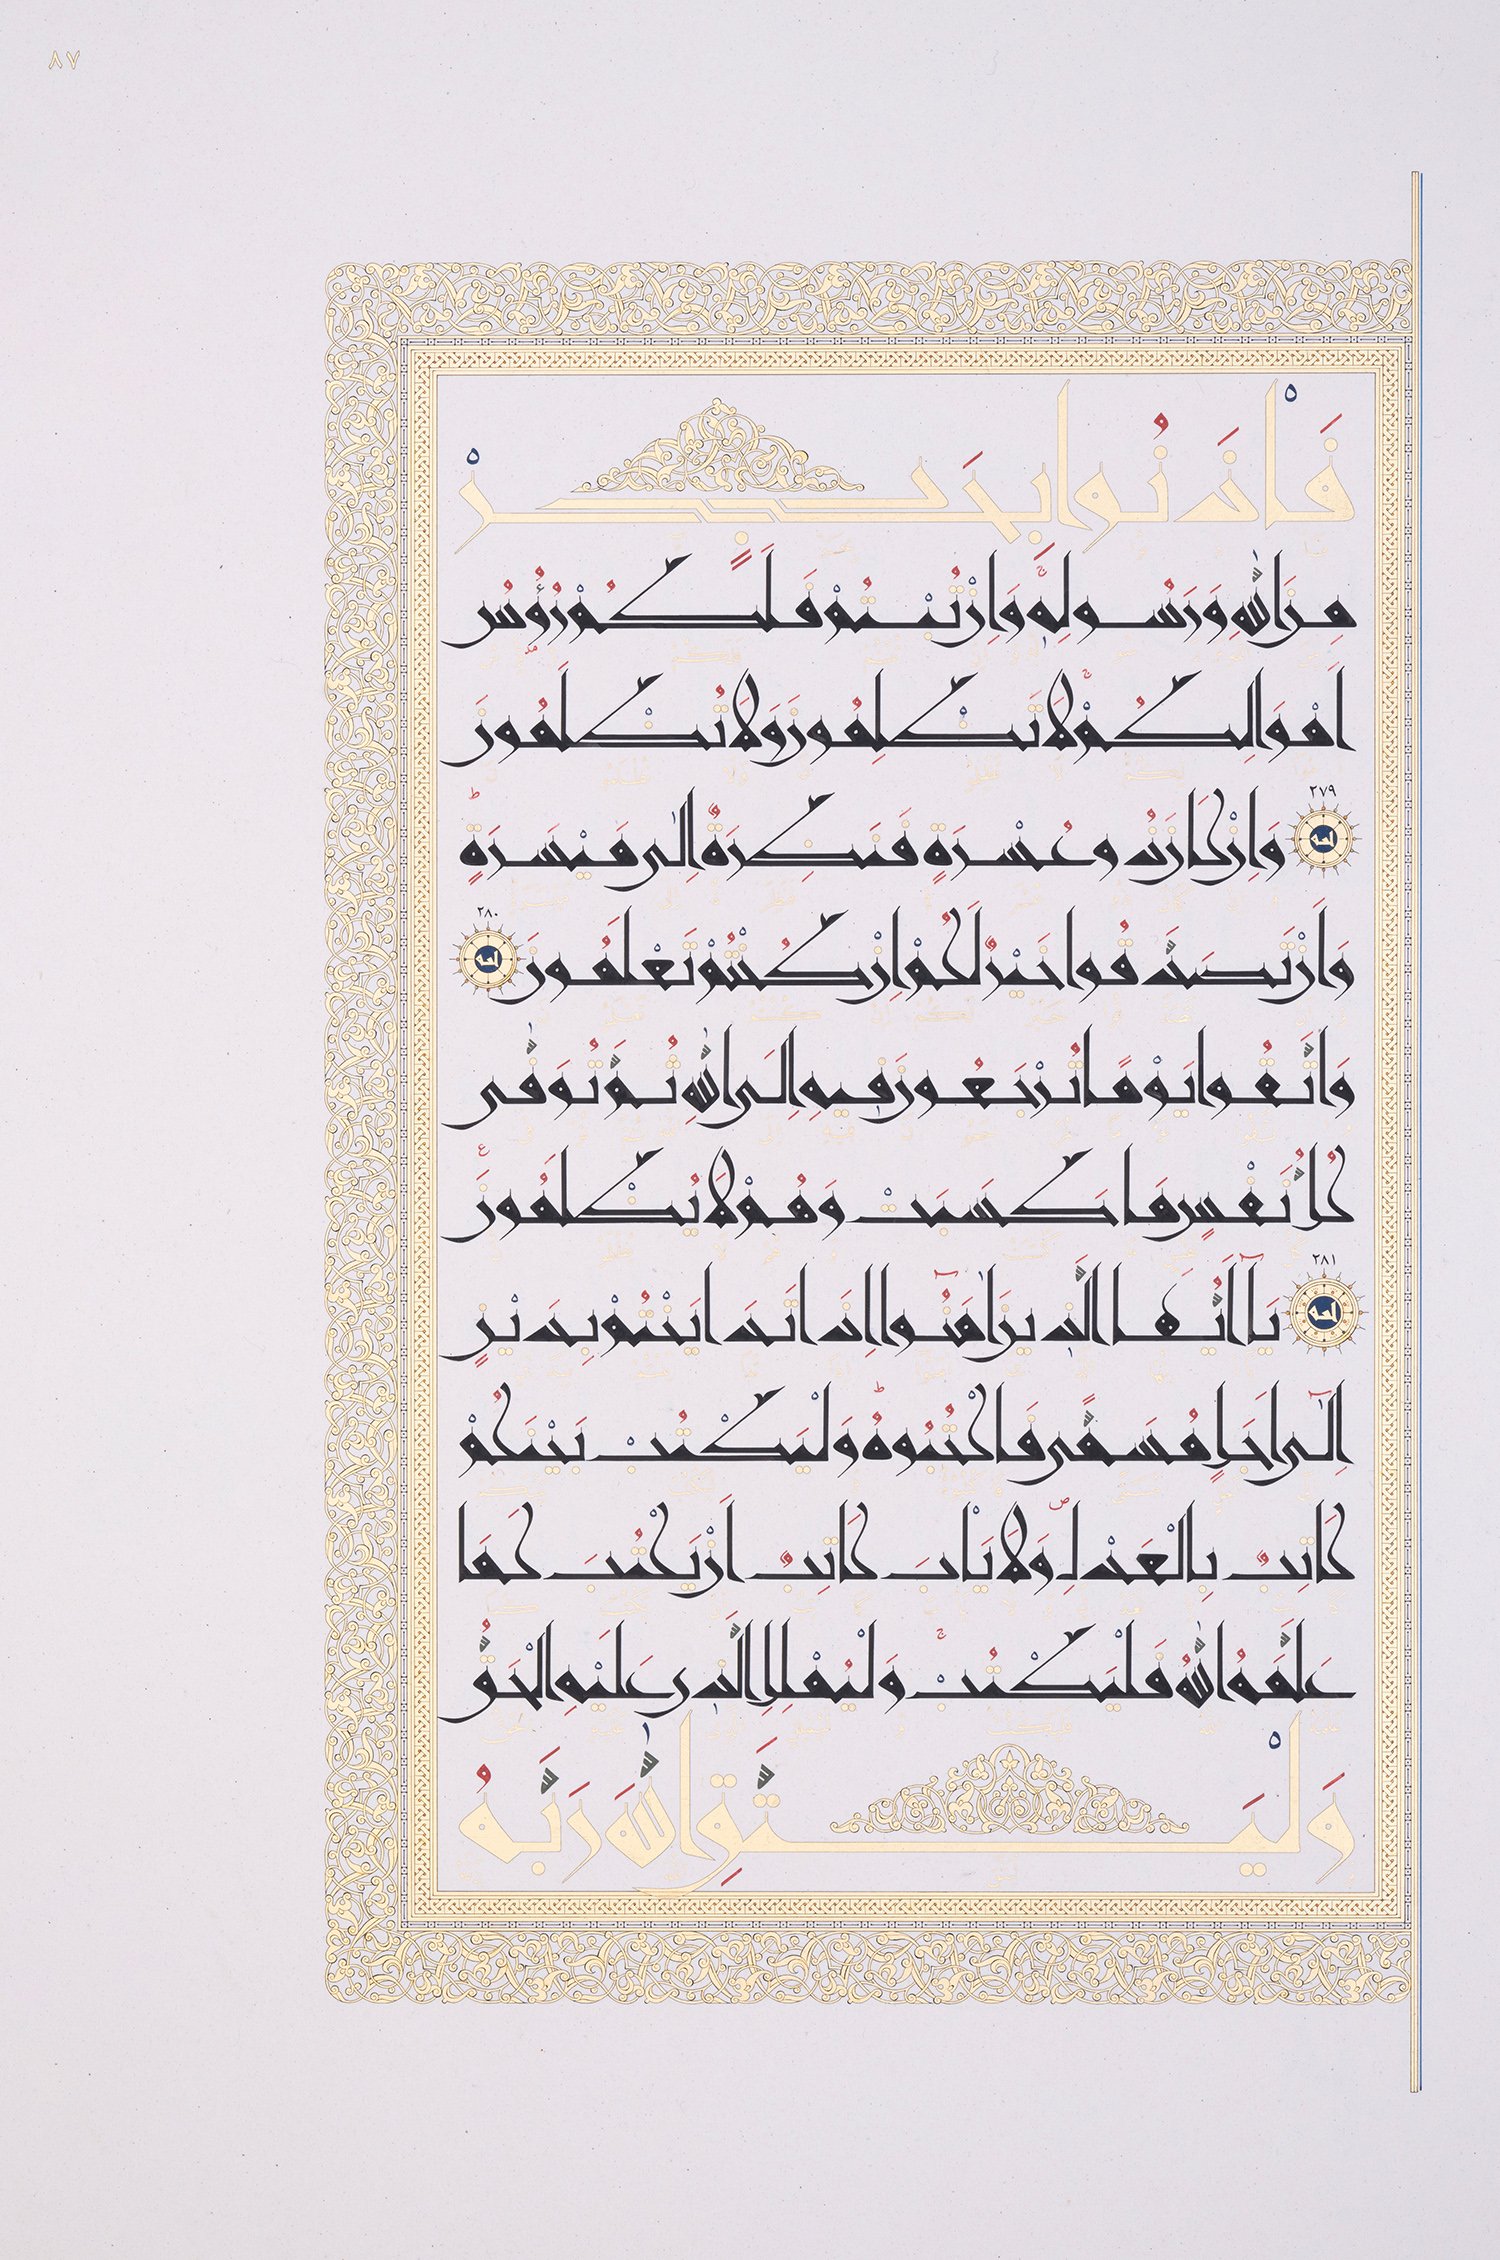 ٨٧
فَاْذَنُوا بِحَرْبٍ
مِنَ اللّٰهِ وَرَسُولِهٖ وَاِنْ تُبْتُمْ فَلَكُمْ رُؤُسُ
اَمْوَالِكُمْ لَا تَظْلِمُونَ وَلَا تُظْلَمُونَ
٢٧٩ وَاِنْ كَانَ ذُو عُسْرَةٍ فَنَظِرَةٌ اِلٰى مَيْسَرَةٍ
وَاَنْ تَصَدَّقُوا خَيْرٌ لَكُمْ اِنْ كُنْتُمْ تَعْلَمُونَ ٢٨٠
وَاتَّقُوا يَوْمًا تُرْجَعُونَ فِيهِ اِلَى اللّٰهِ ثُمَّ تُوَفّٰى
كُلُّ نَفْسٍ مَا كَسَبَتْ وَهُمْ لَا يُظْلَمُونَ
٢٨١ يَٓا اَيُّهَا الَّذِينَ اٰمَنُٓوا اِذَا تَدَايَنْتُمْ بِدَيْنٍ
اِلٰٓى اَجَلٍ مُسَمًّى فَاكْتُبُوهُ وَلْيَكْتُبْ بَيْنَكُمْ
كَاتِبٌ بِالْعَدْلِ وَلَا يَاْبَ كَاتِبٌ اَنْ يَكْتُبَ كَمَا
عَلَّمَهُ اللّٰهُ فَلْيَكْتُبْ وَلْيُمْلِلِ الَّذِي عَلَيْهِ الْحَقُّ
وَلْيَتَّقِ اللّٰهَ رَبَّهُ